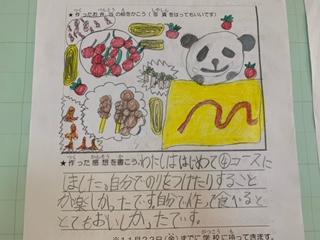 ★作ったお弁当の絵をかこう(写真をはってもいいです)
べんとう
★作った感想を書こう。わたしははじめて④コースに
しました。自分でのりをつけたりすること
が楽しかったです。自分で作って食べると
とてもおいしかったです。
※11月22日(金)までに学校に持ってきます。